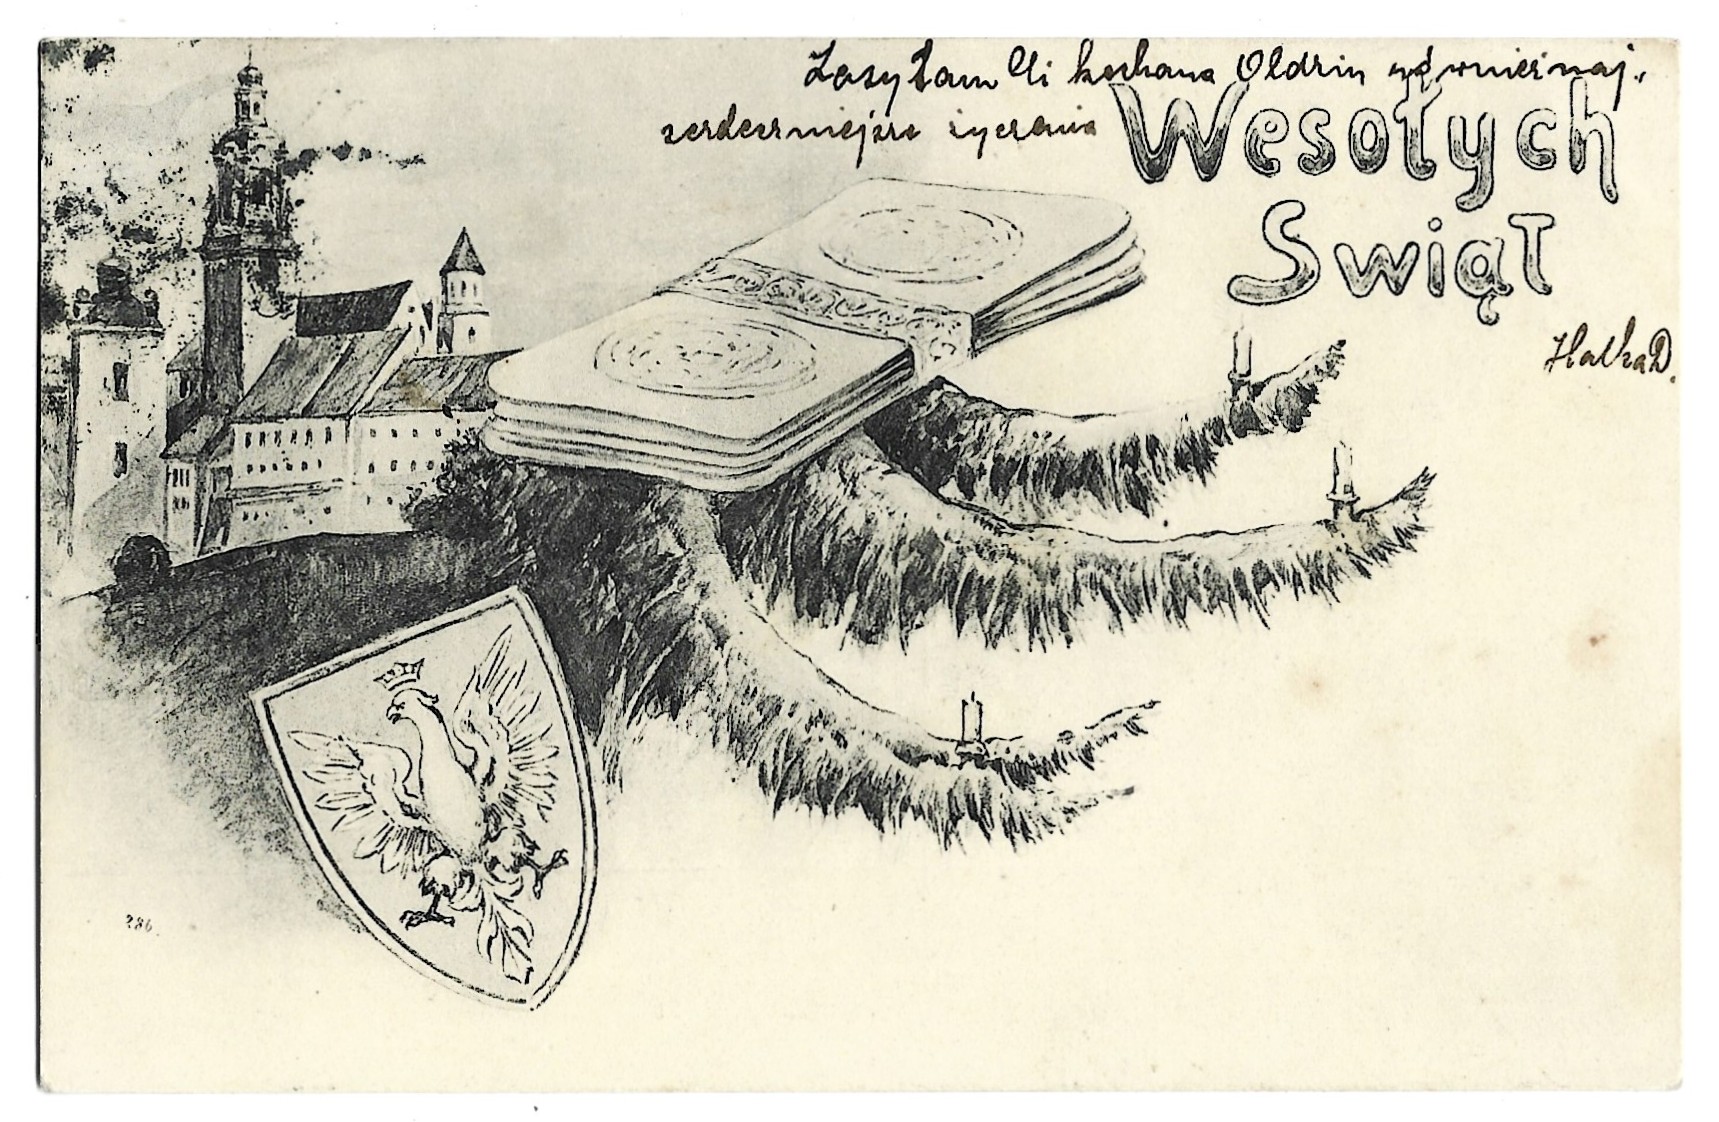 Zasyłam Ci kochana Oldziu również naj-
serdeczniejsze życzenia
Wesołych
Swiąt
Halka D.
286.